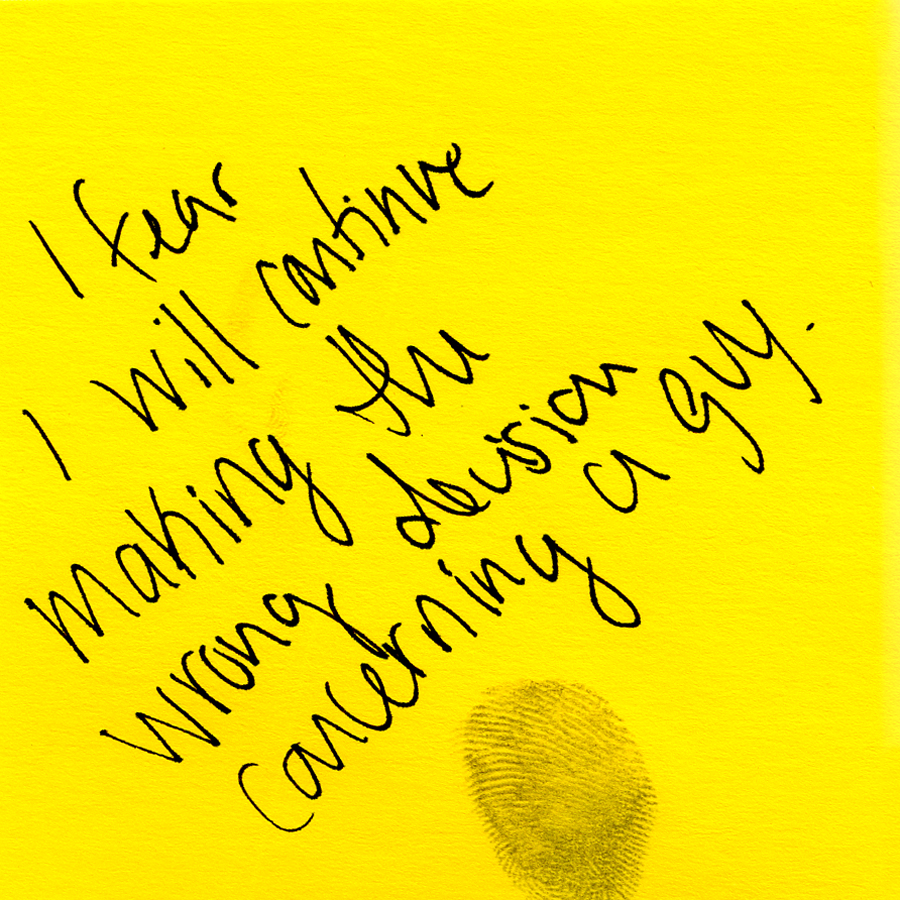 I fear
I will continue
making the
wrong decision
concerning a guy.